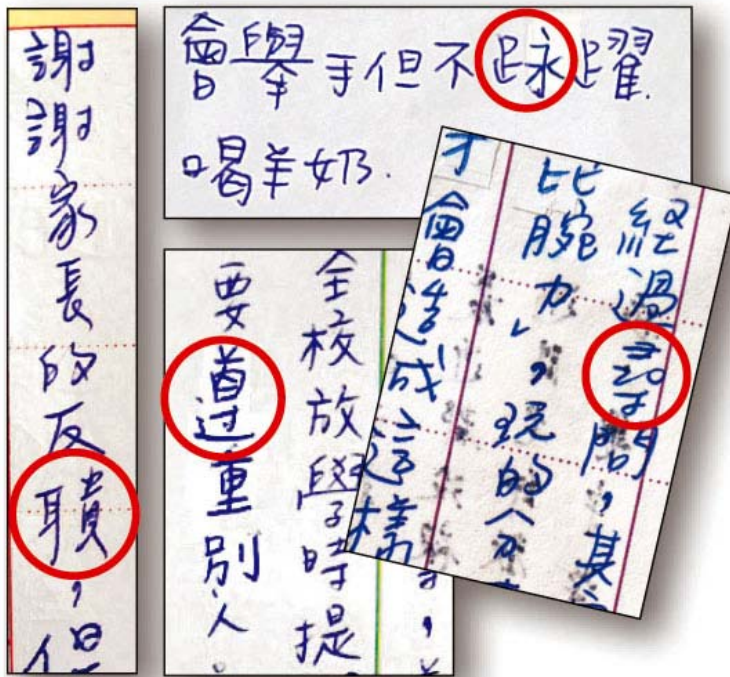 謝謝家長的反聵，但
會舉手但不躍.
喝羊奶.
全校放學時提
要重別人
経過問，其
比腕力，玩的
才會造成這樣